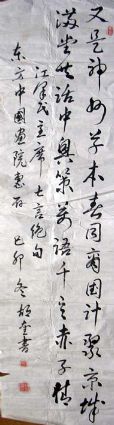 又是神州草木春同商国计聚京城
满堂共话中兴策万语千言赤子情
江泽民主席七言绝句
东方中国画院惠存 己卯冬
书